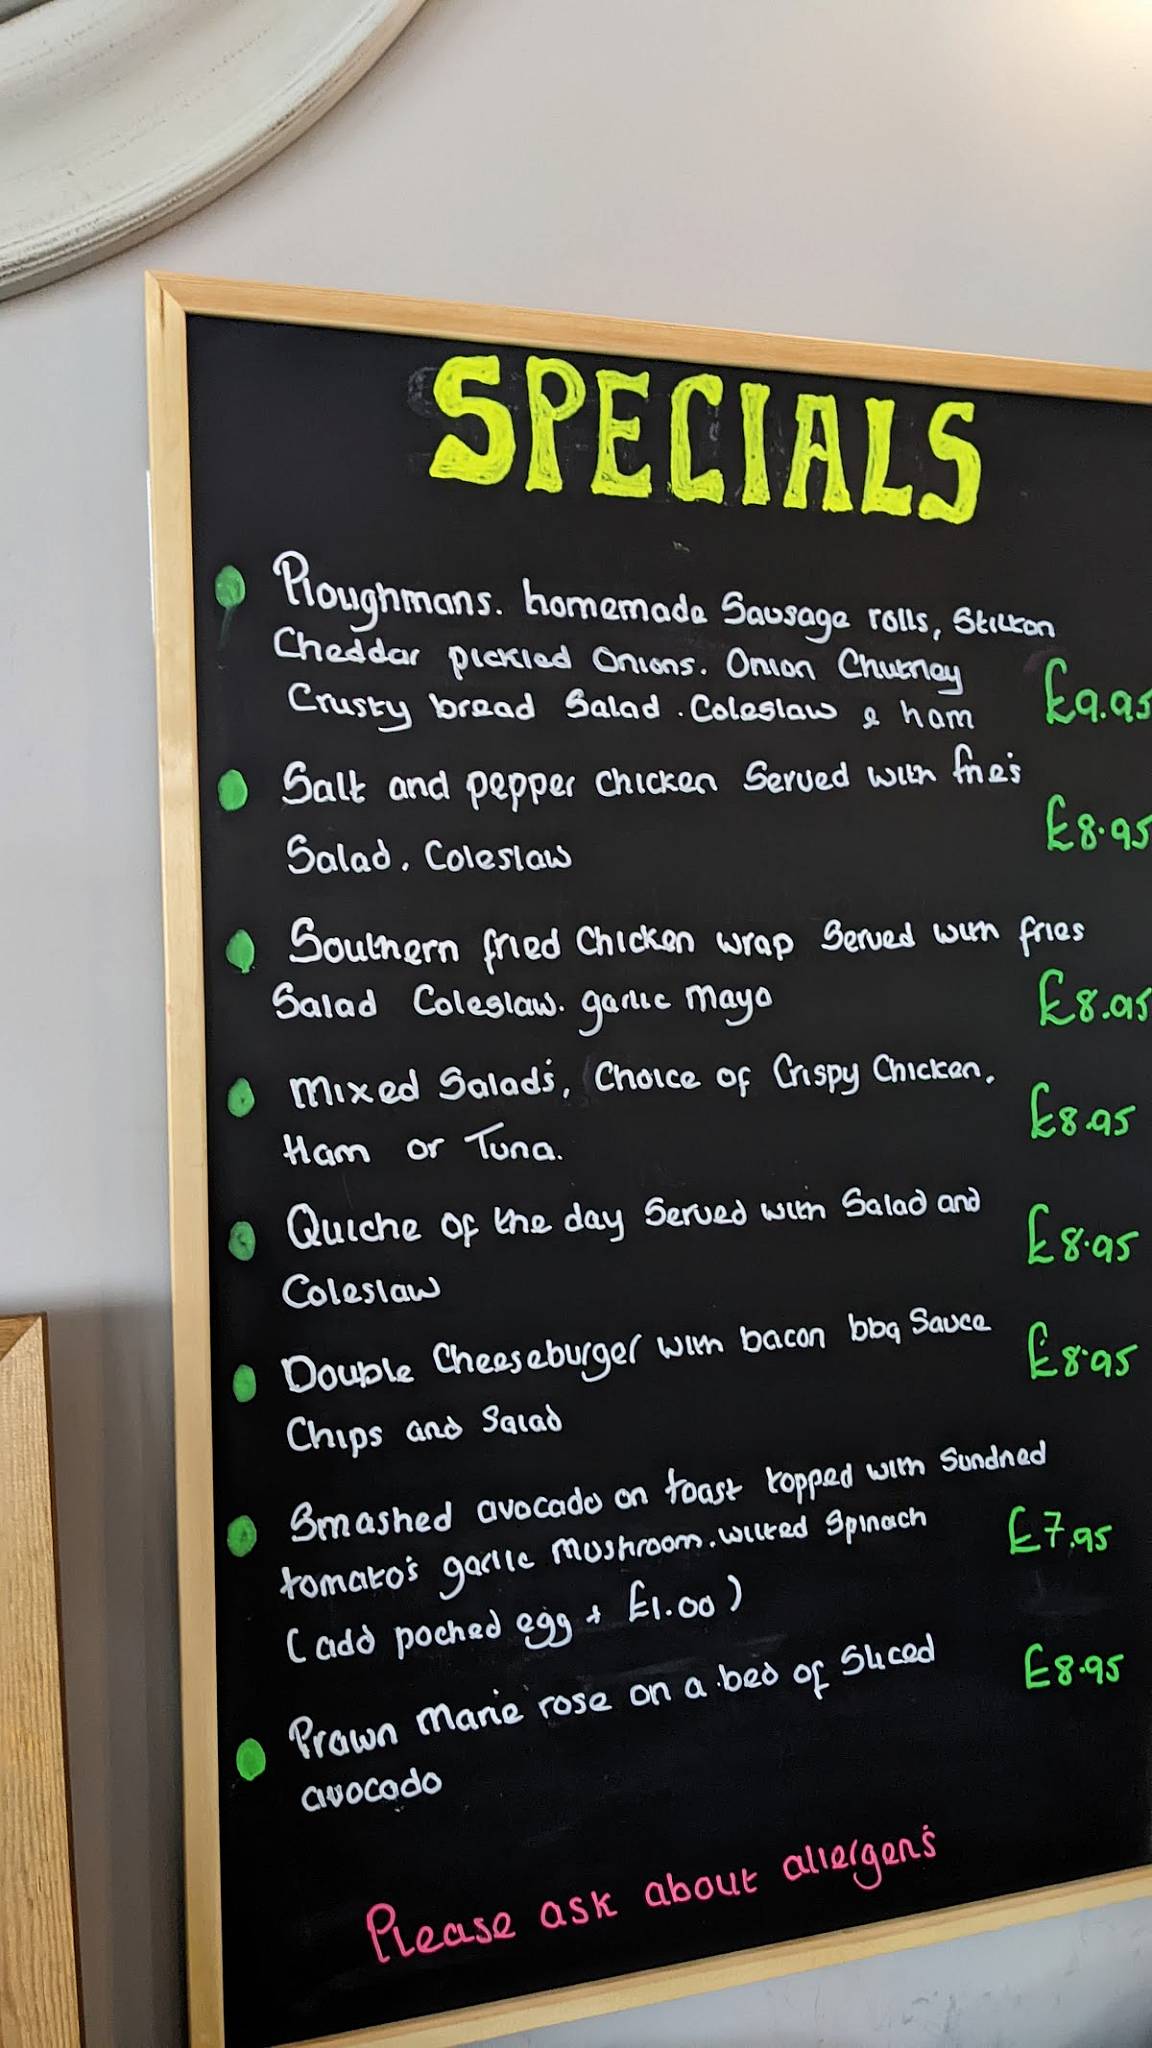 SPECIALS
Ploughmans. homemade Sausage rolls, Stilton
Cheddar pickled Onions. Onion Chutney
Crusty bread Salad. Coleslaw & ham £9.95
Salt and pepper chicken Served with frie's
Salad. Coleslaw £8.95
Southern fried Chicken wrap Served with fries
Salad Coleslaw. garlic mayo £8.95
Mixed Salad's, Choice of Crispy Chicken.
Ham or Tuna. £8.95
Quiche of the day Served with Salad and
Coleslaw £8.95
Double Cheeseburger with bacon bbq Sauce
Chips and Salad £8.95
Smashed avocado on toast topped with Sundried
tomato's garlic mushroom. wilted Spinach £7.95
(add poched egg + £1.00)
Prawn Marie rose on a bed of Sliced
avocado £8.95
Please ask about allergen's